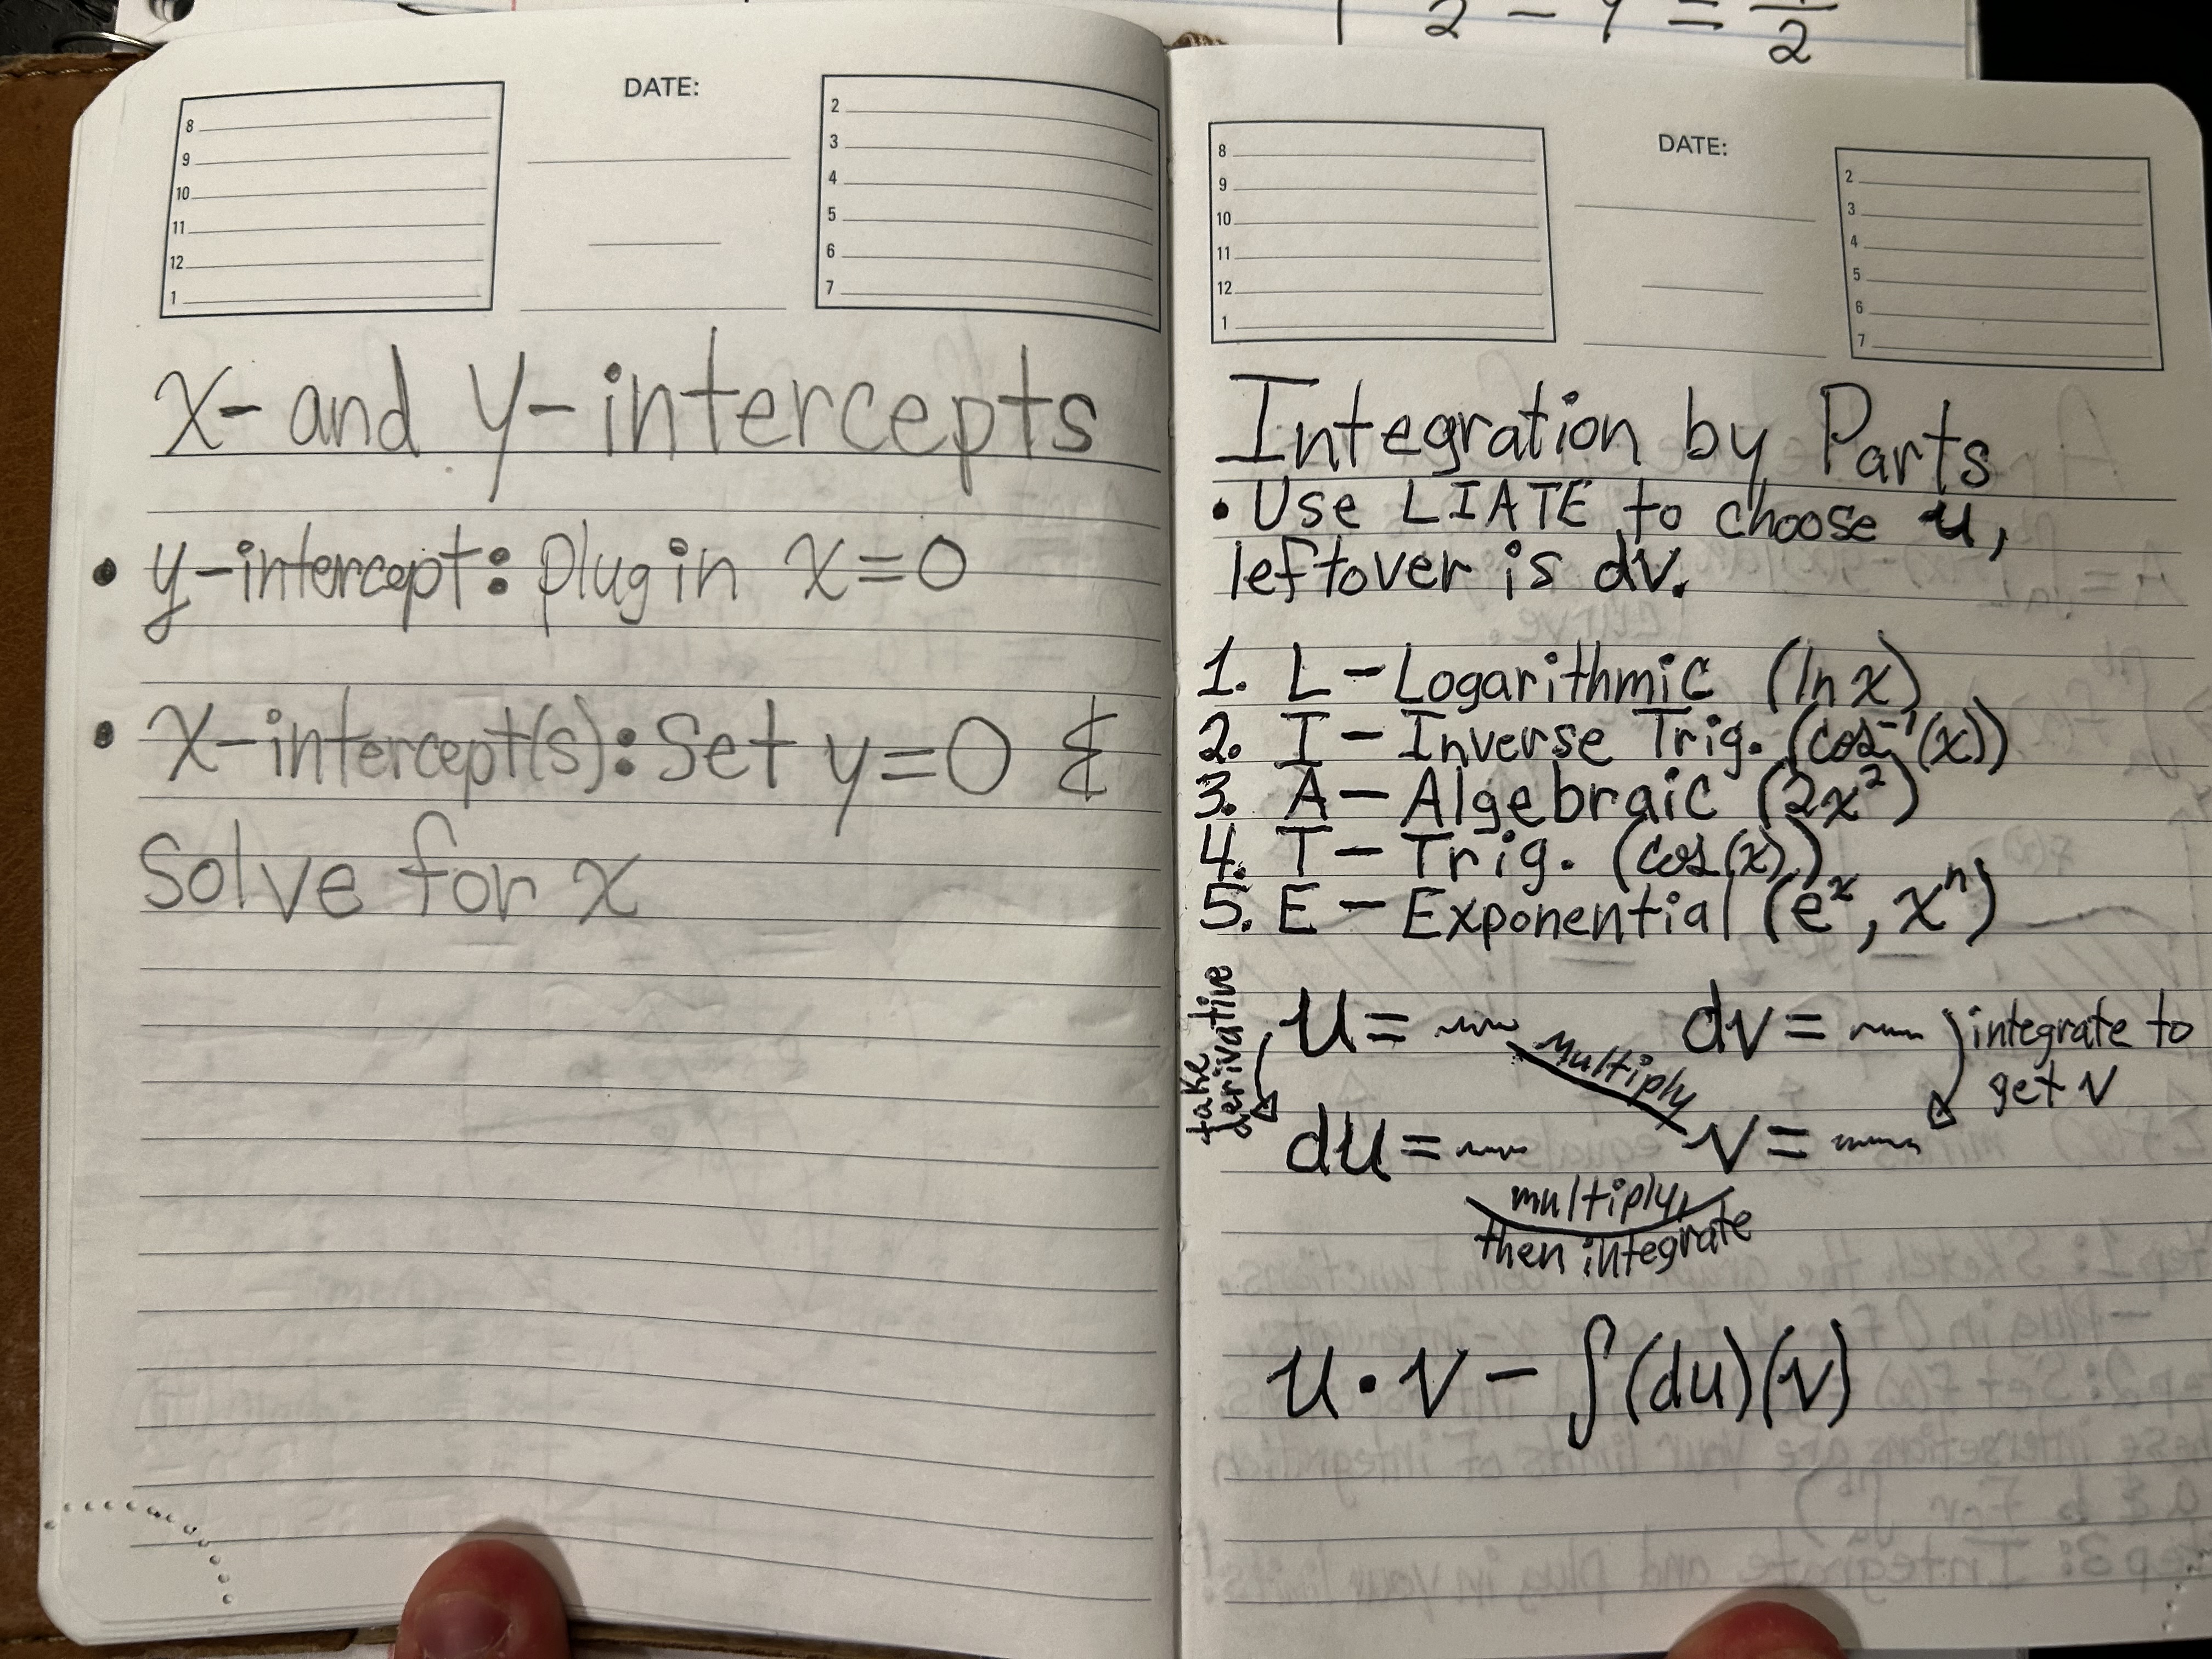 DATE:
8
9
10
11
12
1
2
3
4
5
6
7
x- and y-intercepts
• y-intercept: plug in x=0
• x-intercept(s): Set y=0 &
Solve for x
DATE:
8
9
10
11
12
1
2
3
4
5
6
7
Integration by Parts
• Use LIATE to choose u,
leftover is dv.
1. L - Logarithmic (ln x)
2. I - Inverse Trig. (cos⁻¹(x))
3. A - Algebraic (2x²)
4. T - Trig. (cos(x))
5. E - Exponential (eˣ, xⁿ)
take
derivative
u = dv =
multiply
integrate to
get v
du = v =
multiply,
then integrate
u · v - ∫(du)(v)
2 - y = 2